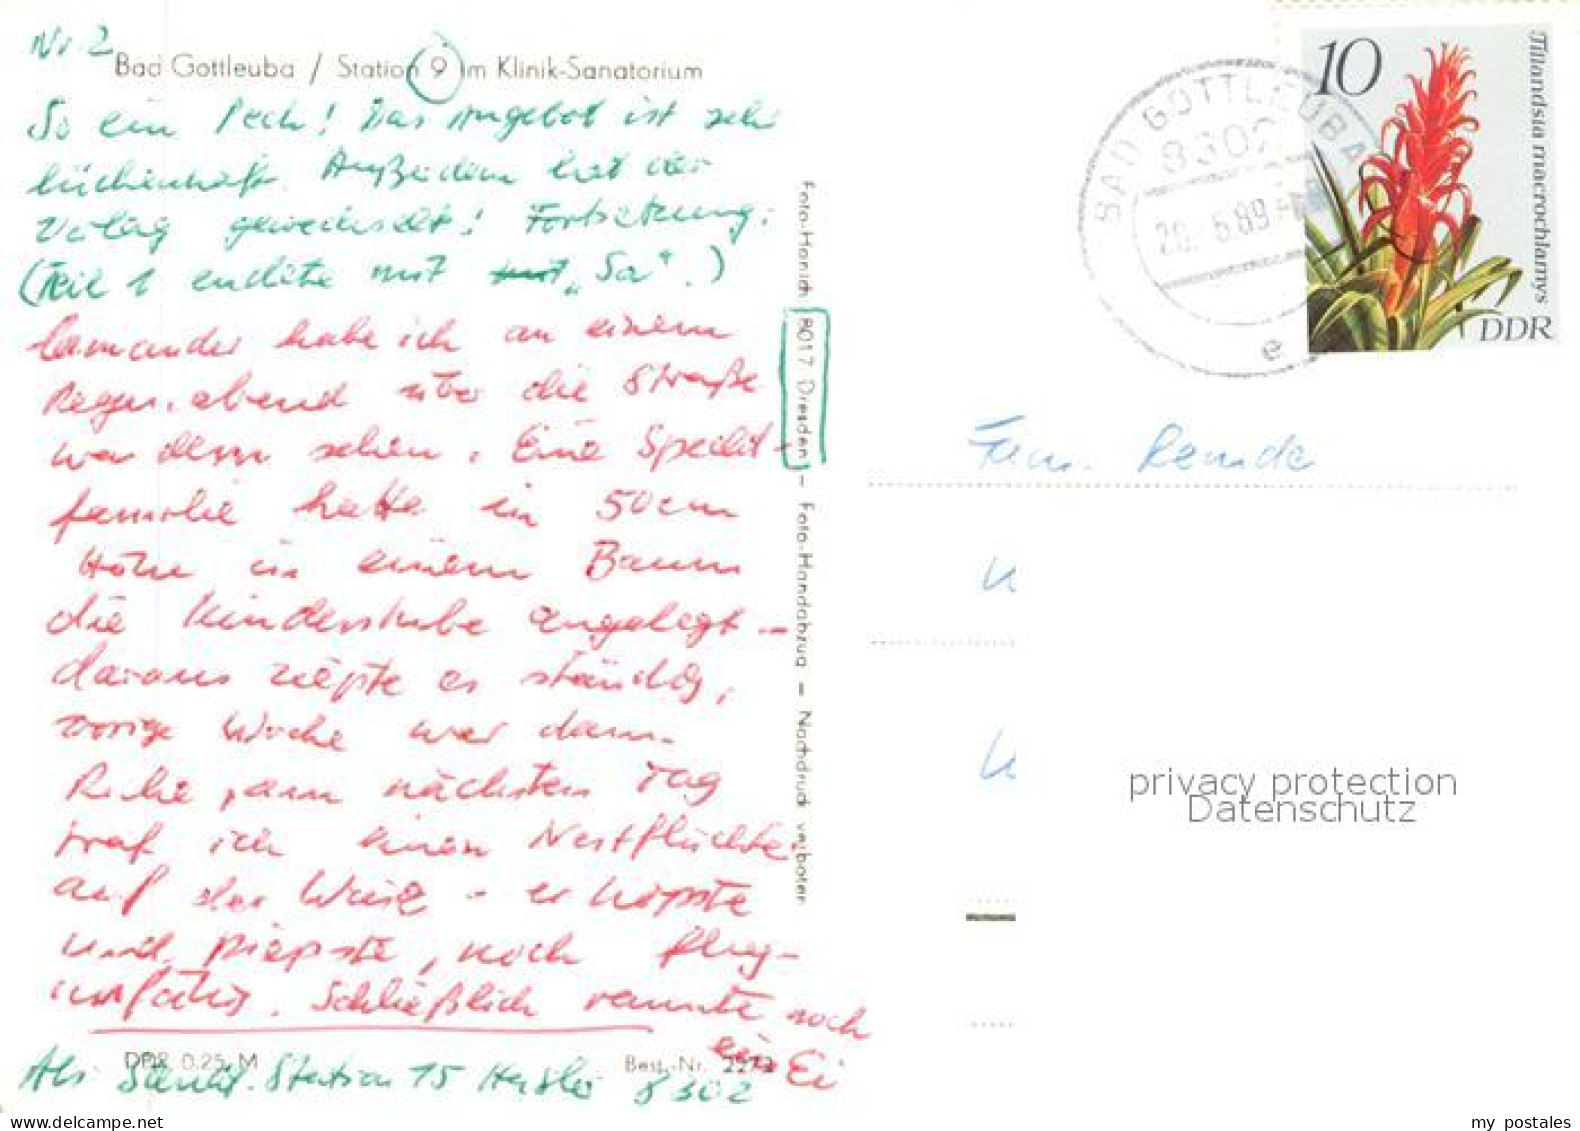 Nr. 2
Bad Gottleuba / Station 9 im Klinik-Sanatorium
So ein Pech! Das Angebot ist sehr
lückenhaft. Außerdem hat der
Verlag gewechselt! Fortsetzung:
(Teil 1 endete mit „Sa“.)
lamander habe ich an einem
Regenabend über die Straße
wandern sehen. Eine Specht-
familie hatte in 50cm
Höhe in einem Baum
die Kinderstube angelegt -
daraus piepte es ständig,
vorige Woche war dann
Ruhe, am nächsten Tag
traf ich einen Nestflüchter
auf der Wiese - er hopste
und piepste, noch flug-
unfähig. Schließlich rannte noch
ein Ei
DDR 0.25 M
Best.-Nr. 2273
Station 15 8302
Foto-Hanich 8017 Dresden – Foto-Handabzug – Nachdruck verboten
BAD GOTTLEUBA
8302
20. 5.89
e
10
Tillandsia macrochlamys
DDR
Fam.
privacy protection
Datenschutz
my postales